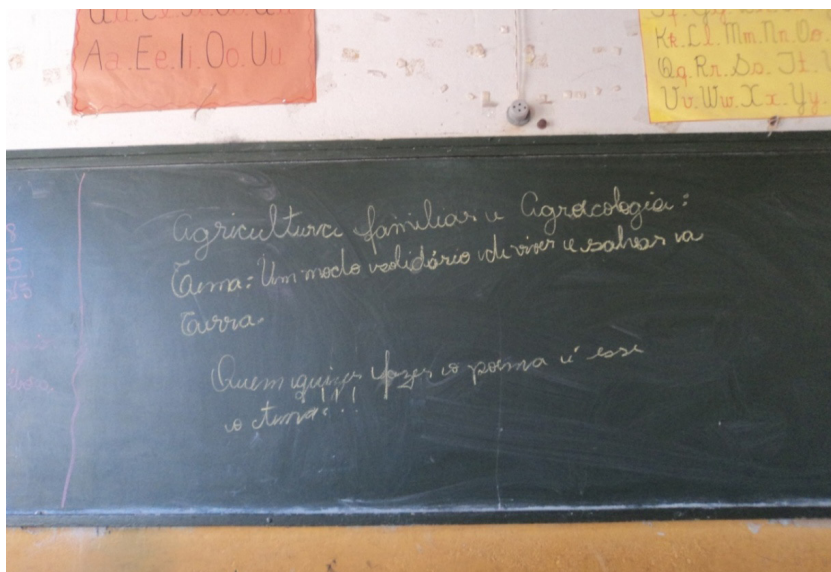 Aa.Ee.Ii.Oo.Uu
Kk.Ll.Mm.Nn.Oo.
Qq.Rr.Ss.Tt.
Vv.Ww.Xx.Yy.
Agricultura familiar e Agroecologia:
Tema: Um modo solidário de viver e salvar a
Terra.
Quem quizer fazer o poema é esse
o tema!!!